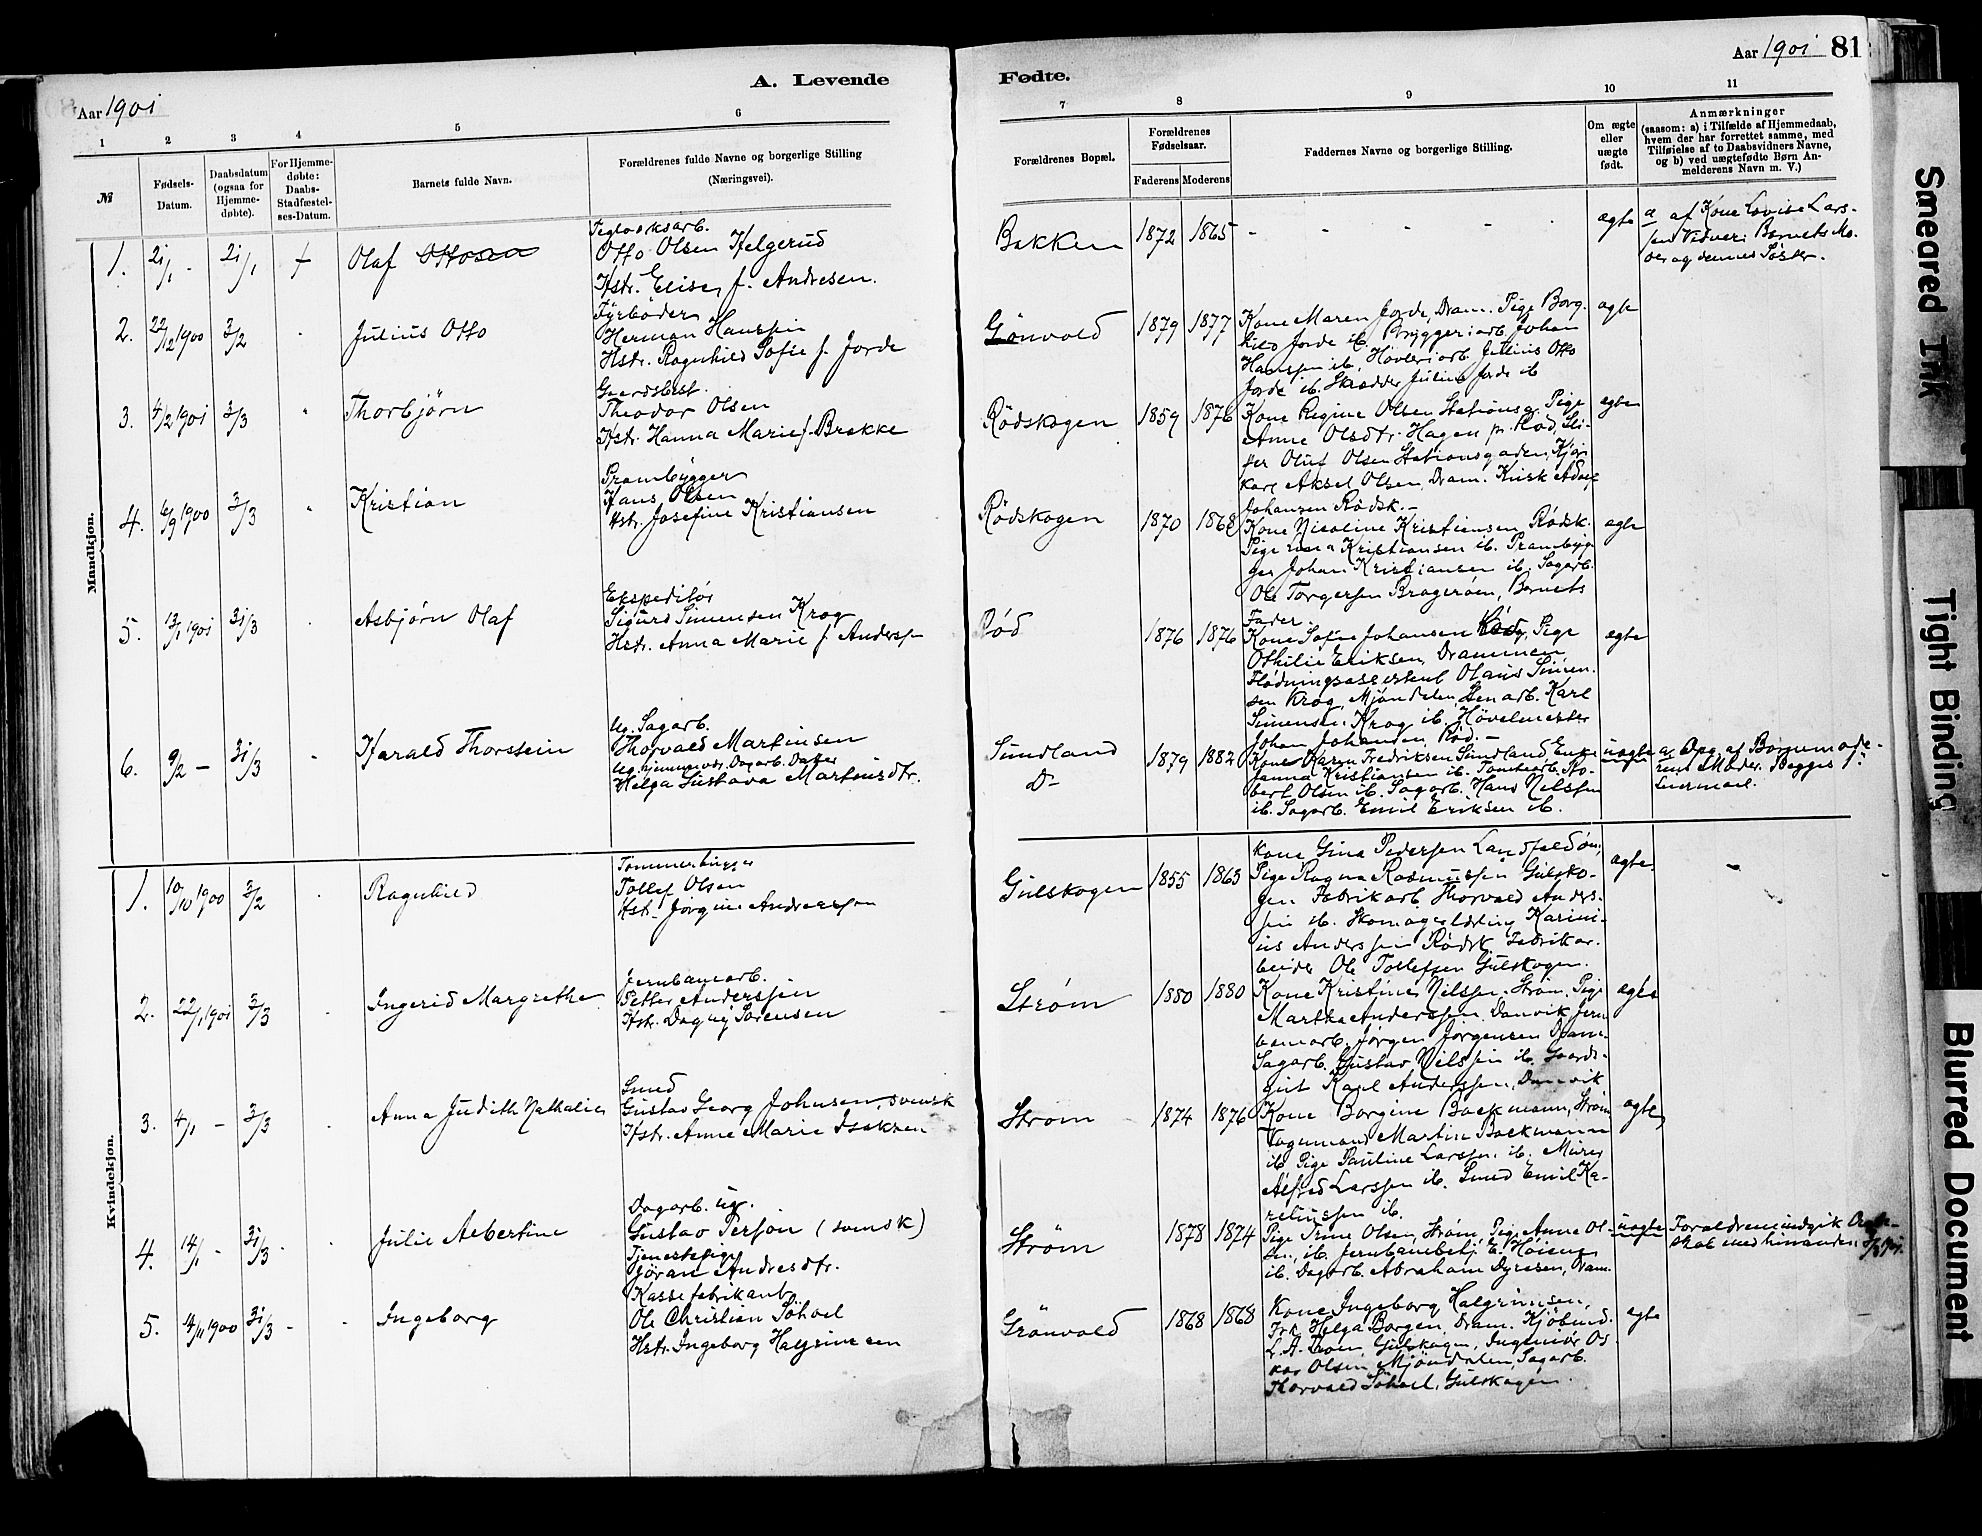 Aar 1901
A. Levende
Fødte.
Aar 1901 81
1 2 3 4 5 6 7 8 9 10 11
№
Fødsels-Datum.
Daabsdatum (ogsaa for Hjemme-døbte).
For Hjemme-døbte: Daabs-Stadfæstel-ses-Datum.
Barnets fulde Navn.
Forældrenes fulde Navne og borgerlige Stilling
(Næringsvei).
Forældrenes Bopæl.
Forældrenes Fødselsaar.
Faderens Moderens
Faddernes Navne og borgerlige Stilling.
Om ægte eller uægte født.
Anmærkninger
(saasom: a) i Tilfælde af Hjemmedaab,
hvem der har forrettet samme, med
Tilføielse af to Daabsvidners Navne,
og b) ved uægtefødte Børn An-
melderens Navn m. V.)
Mandkjøn.
1. 21/1 - 21/1 + Olaf Ottosen
Teglværksarb.
Otto Olsen Helgerud
Hstr. Elise f. Andresen.
Bakken 1872 1865 - - - - ægte
a af Kone Lovise Lars-
sen Vidner: Barnets Mo-
der og dennes Søster.
2. 22/12 1900 3/2 Julius Otto
Fyrbøder
Herman Hanssen
Hstr. Ragnhild Sofie f. Jorde
Grønvold 1879 1877
Kone Maren Jorde, Dram. Pige Borg-
hild Jorde ib. Bryggeriarb. Johan
Hanssen ib, Høvleriarb. Julius Otto
Jorde ib. Skrædder Julius Jorde ib
ægte
3. 4/2 1901 3/3 Thorbjørn
Gaardsbest.
Theodor Olsen
Hstr. Hanna Marie f. Brekke
Rødskogen 1859 1876
Kone Regine Olsen Stationsg. Pige
Anne Olsdtr. Hagen p. Rød,
Oluf Olsen Stationsgaden,
Aksel Olsen, Dram. Kusk Adolf
Johansen Rødsk. -
ægte
4. 6/9 1900 3/3 Kristian
Prambygger
Hans Olsen
Hstr. Josefine Kristiansen
Rødskogen 1870 1868
Kone Nicoline Kristiansen, Rødsk.
Pige Kristiansen ib. Prambyg-
ger Johan Kristiansen ib. Sagarb.
Ole Torgersen Bragerøen, Barnets
Fader.
ægte
5. 13/1 1901 31/3 Asbjørn Olaf
Ekspeditør
Sigurd Simensen Krog
Hstr. Anna Marie f. Anderss
Rød 1876 1876
Kone Sofie Johansen Rød, Pige
Othilie Eriksen, Drammen
Flødningsassistent Olaus Simen-
sen Krog, Mjøndalen, Stenarb. Karl
Simensen Krog ib. Høvelmester
Johan Johansen Rød. -
ægte
6. 9/2 - 31/3 Harald Thorstein
Ug. Sagarb.
Thorvald Martinsen
Ug. hjemmevr. Dagarb. Datter
Helga Gustava Martinsdtr.
Sundland
D- 1879 1882
Kone Karen Fredriksen Sundland, Enke
Janna Kristiansen ib. Tomtearb. Ro-
bert Olsen ib. Sagarb. Hans Nilssen
ib. Sagarb. Emil Eriksen ib.
uægte
a Opg. af Barnemode-
rens Moder. Begges 1ste
Leiermaal.
Kvindekjøn.
1. 10/10 1900 3/2 Ragnhild
Tømmerhugger
Tollef Olsen
Hstr. Jørgine Anderssen
Gulskogen 1855 1863
Kone Gina Pedersen Landfaldøen,
Pige Ragna Rasmussen Gulsko-
gen Fabrikarb. Thorvald Anders-
sen ib. Skomagerlærling Karini-
us Anderssen Rødsk. Fabrikar-
beider Ole Tollefsen Gulskogen.
ægte -
2. 22/1 1901 3/3 Ingerid Margrethe
Jernbanearb.
Petter Anderssen
Hstr. Dagny Sørensen
Strøm 1880 1880
Kone Kristine Nilssen. Strøm, Pige
Martha Anderssen, Danvik Jern-
banearb. Jørgen Jørgensen Dram.
Sagarb. Gustav Nilssen ib. Gaards-
gut Karl Anderssen, Danvik
ægte
3. 4/1 - 3/3 Anna Judith Nathalie
Smed
Gustav Georg Johnsen, svensk
Hstr. Anne Marie Isaksen
Strøm 1874 1876
Kone Borgine Backmann, Strøm
Vognmand Martin Backmann
ib. Pige Pauline Larssen. ib. Murer
Alfred Larssen ib. Smed Emil Ka-
reliussen ib.
ægte
4. 14/1 - 31/3 - Julie Albertine
Dagarb. ug.
Gustav Persson (svensk)
Tjenestepige
Göran Andresdtr.
Strøm 1878 1874
Pige Trine Olsen, Strøm, Pige Anne Ol-
sen, ib. Jernbanebetj. E. Høiene
ib. Dagarb. Abraham Dyresen, Dram.
uægte
Forældrene indgik Ægte-
skab med hinanden
5. 4/11 1900 31/3 - Ingeborg
Kassefabrikant
Ole Christian Söhoel
Hstr. Ingeborg Halgrimsen
Grønvold 1868 1868
Kone Ingeborg Halgrimsen,
Frk. Helga Borgen, Dram. Kjøbmd.
L. A. Gulskogen, Ingeniør Os-
kar Olsen Mjøndalen, Sagarb.
Thorvald Söhoel, Gulskogen.
ægte
Smeared Ink
Tight Binding
Blurred Document